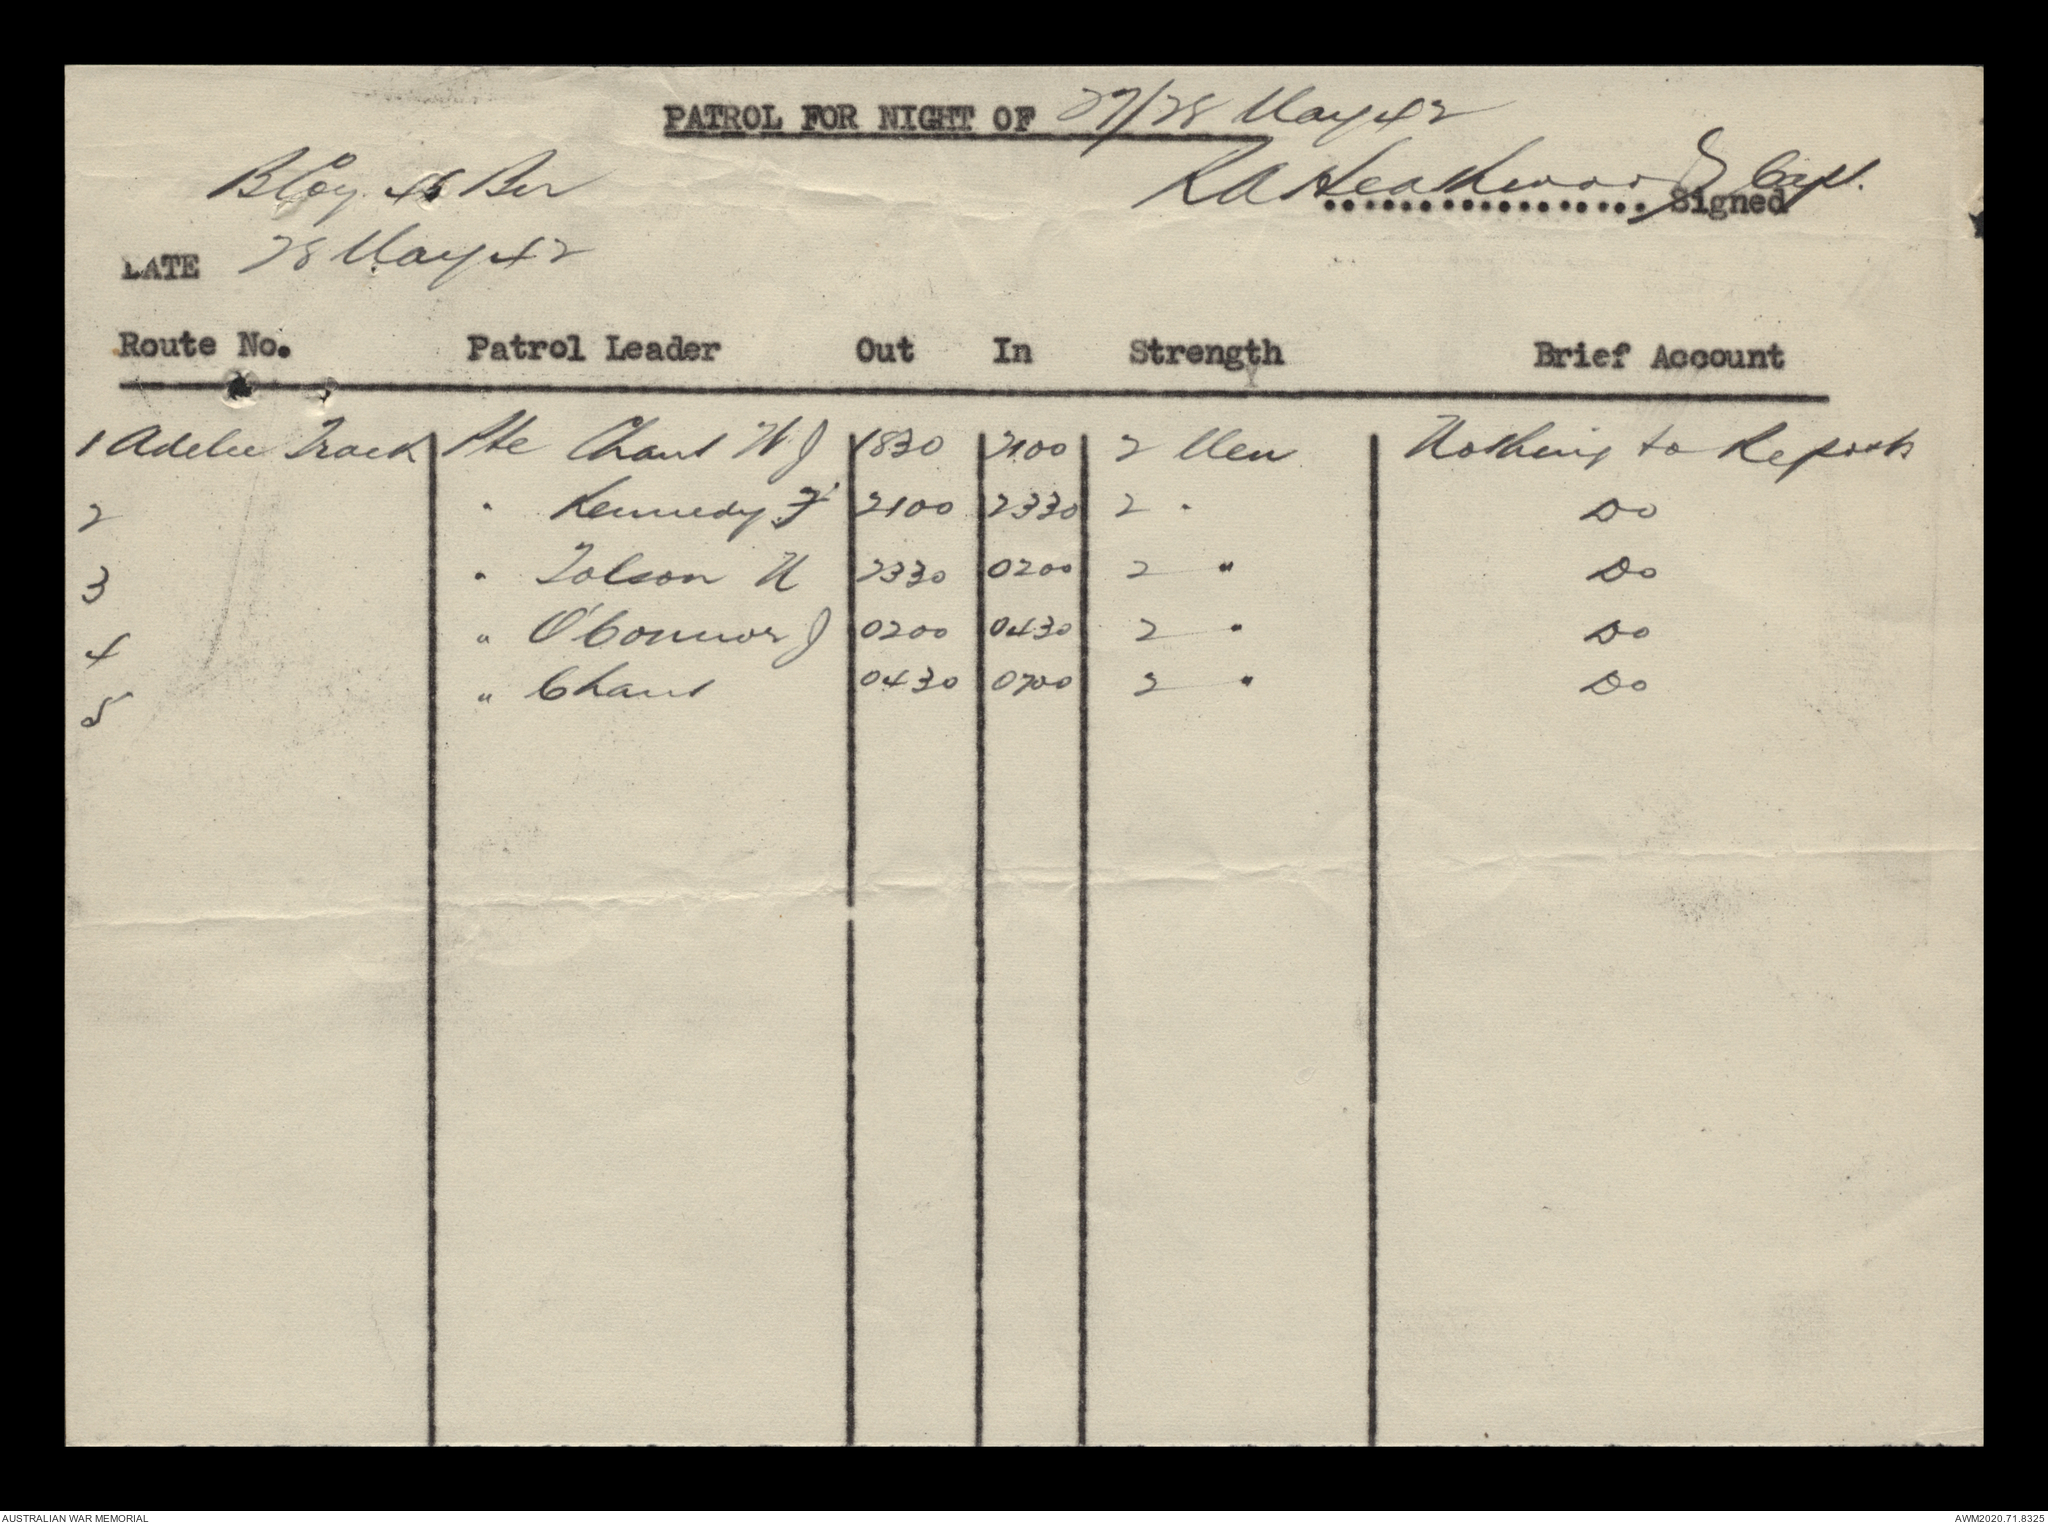 PATROL FOR NIGHT OF 27/28 May 42
B Coy 46 Bn
R A Heathwood Capt.
................. Signed
DATE 28 May 42
Route No. Patrol Leader Out In Strength Brief Account
1 Track Pte Chant W J 1830 2100 2 Men Nothing to Report
2 " Kennedy F 2100 2330 2 " Do
3 " Tolson N 2330 0200 2 " Do
4 " O'Connor J 0200 0430 2 " Do
5 " Chant 0430 0700 2 " Do
AUSTRALIAN WAR MEMORIAL
AWM2020.71.8325